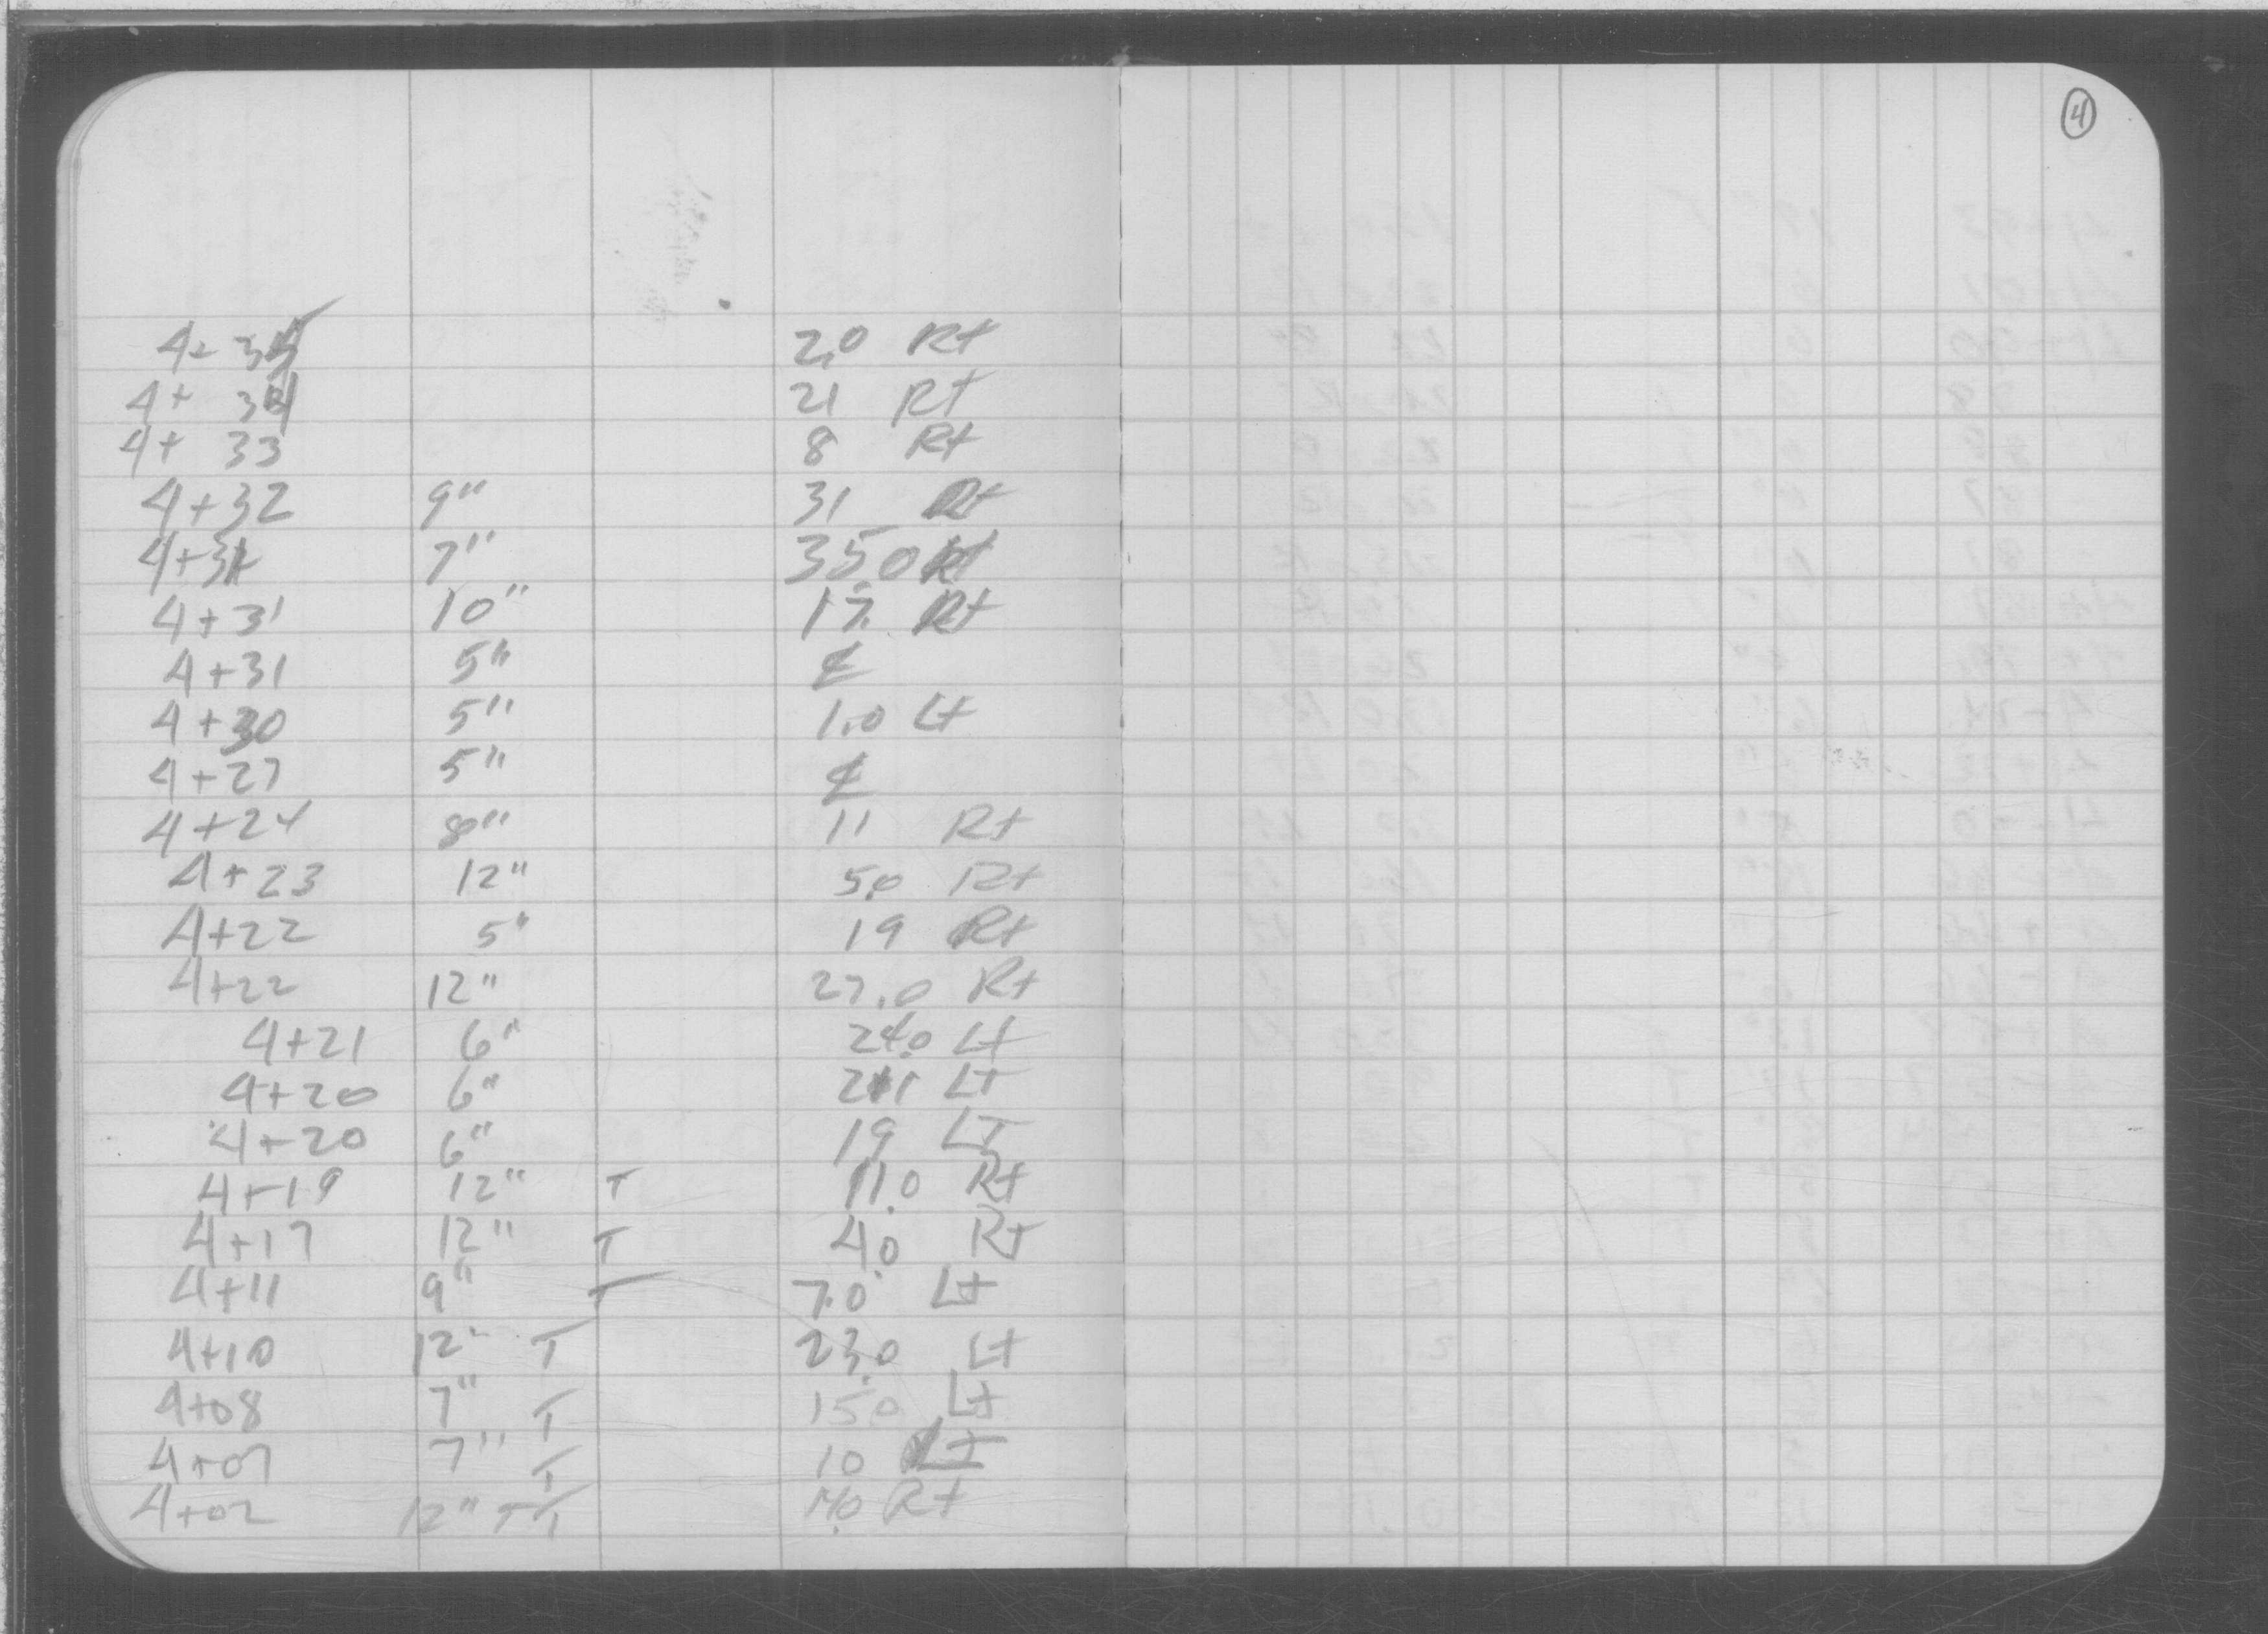 4
4+ 35 2.0 Rt
4+ 34 21 Rt
4+ 33 8 Rt
4+32 9" 31 Rt
4+31 7" 35.0 Rt
4+31 10" 17. Rt
4+31 5" ȼ
4+30 5" 1.0 Lt
4+27 5" ȼ
4+24 8" 11 Rt
4+23 12" 5.0 Rt
4+22 5" 19 Rt
4+22 12" 27.0 Rt
4+21 6" 24.0 Lt
4+20 6" 21 Lt
4+20 6" 19 LT
4+19 12" T 11.0 Rt
4+17 12" T 4.0 Rt
4+11 9" T 7.0 Lt
4+10 12" T 23.0 Lt
4+08 7" T 15.0 Lt
4+07 7" T 10 Lt
4+02 12" T Rt